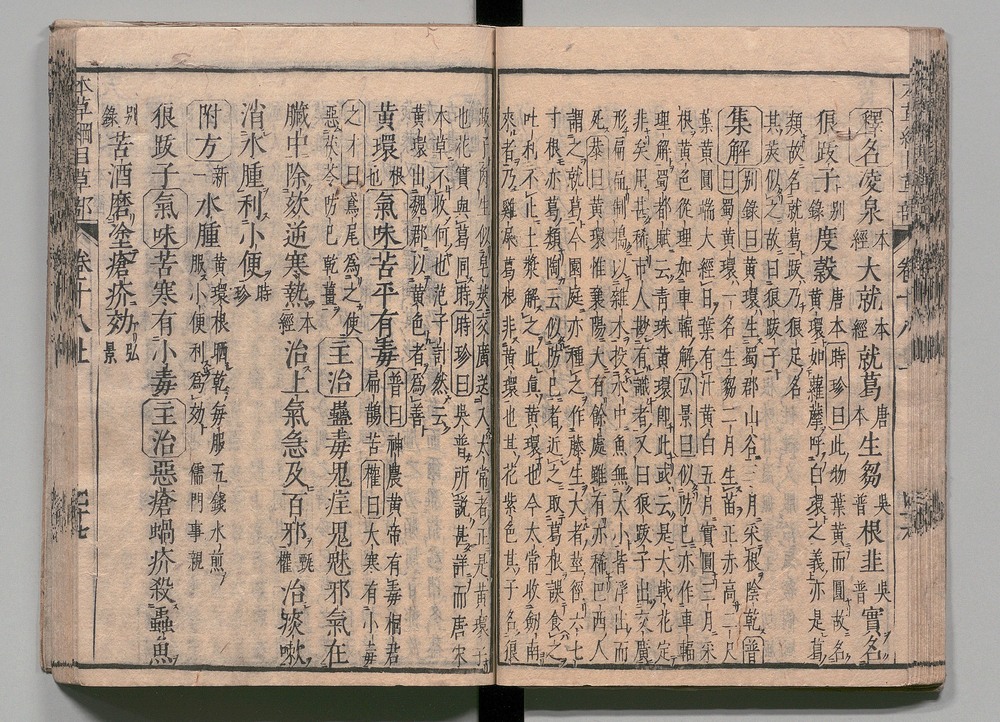 釋名凌泉本經大就本經就葛唐本生芻吳普根韭吳普實名
狼跋子別錄度穀唐本時珍曰此物葉黃而圓故名黃環如蘿藦呼白環之義亦是葛
類故名就葛跋乃狼足名其莢似之故曰狼跋子
集解別錄曰黃環生蜀郡山谷三月采根陰乾普曰蜀黃環一名生芻二月生苗正赤高二尺
葉黃圓端大經日葉有汁黃白五月實圓三月采
根黃色從理如車輻解弘景曰似防已亦作車輻
理解蜀都賦云青珠黃環即此或云是大戟花定
非矣用甚稀市人鮮有識者又曰狼跋子出交廣
形扁扁制搗以雜木投水中魚無大小皆浮出而
死恭曰黃環惟襄陽大有餘處雖有亦稀巴西人
謂之就葛今園庭亦種之作藤生大者莖徑六七
寸根亦葛類陶云似防已者近之取葛根誤食之
吐利不止土漿解之此真黃環也今太常收劍南
來者乃雞屎葛根非黃環也其花紫色其子名狼
跋子角生似皂莢交廣送入太常者正是黃環子
也花實與葛同時珍曰吳普所說甚詳而唐宋
本草不收何也范子計然云
黃環出魏郡以黃色者爲善
黃環根也氣味苦平有毒普曰神農黃帝有毒桐君扁鵲苦權曰大寒有小毒
之才曰鳶尾爲之使惡茯苓防已乾薑主治蠱毒鬼疰鬼魅邪氣在
臟中除欬逆寒熱本經治上氣急及百邪甄權治痰嗽
消水腫利小便時珍
附方新一水腫黃環根晒乾每服五錢水煎服小便利爲效儒門事親
狼跋子氣味苦寒有小毒主治惡瘡蝸疥殺蟲魚
別錄苦酒磨塗瘡疥効弘景
本草綱目草部 卷十八上